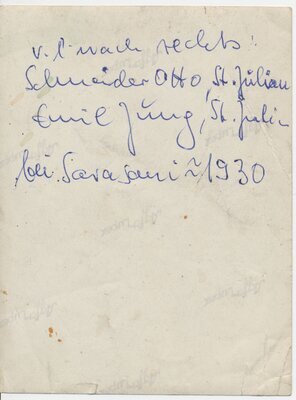 v. l. nach rechts:
Schneider Otto, St. Julian
Emil Jung, St. Julian
bei Sarasani ~ 1930